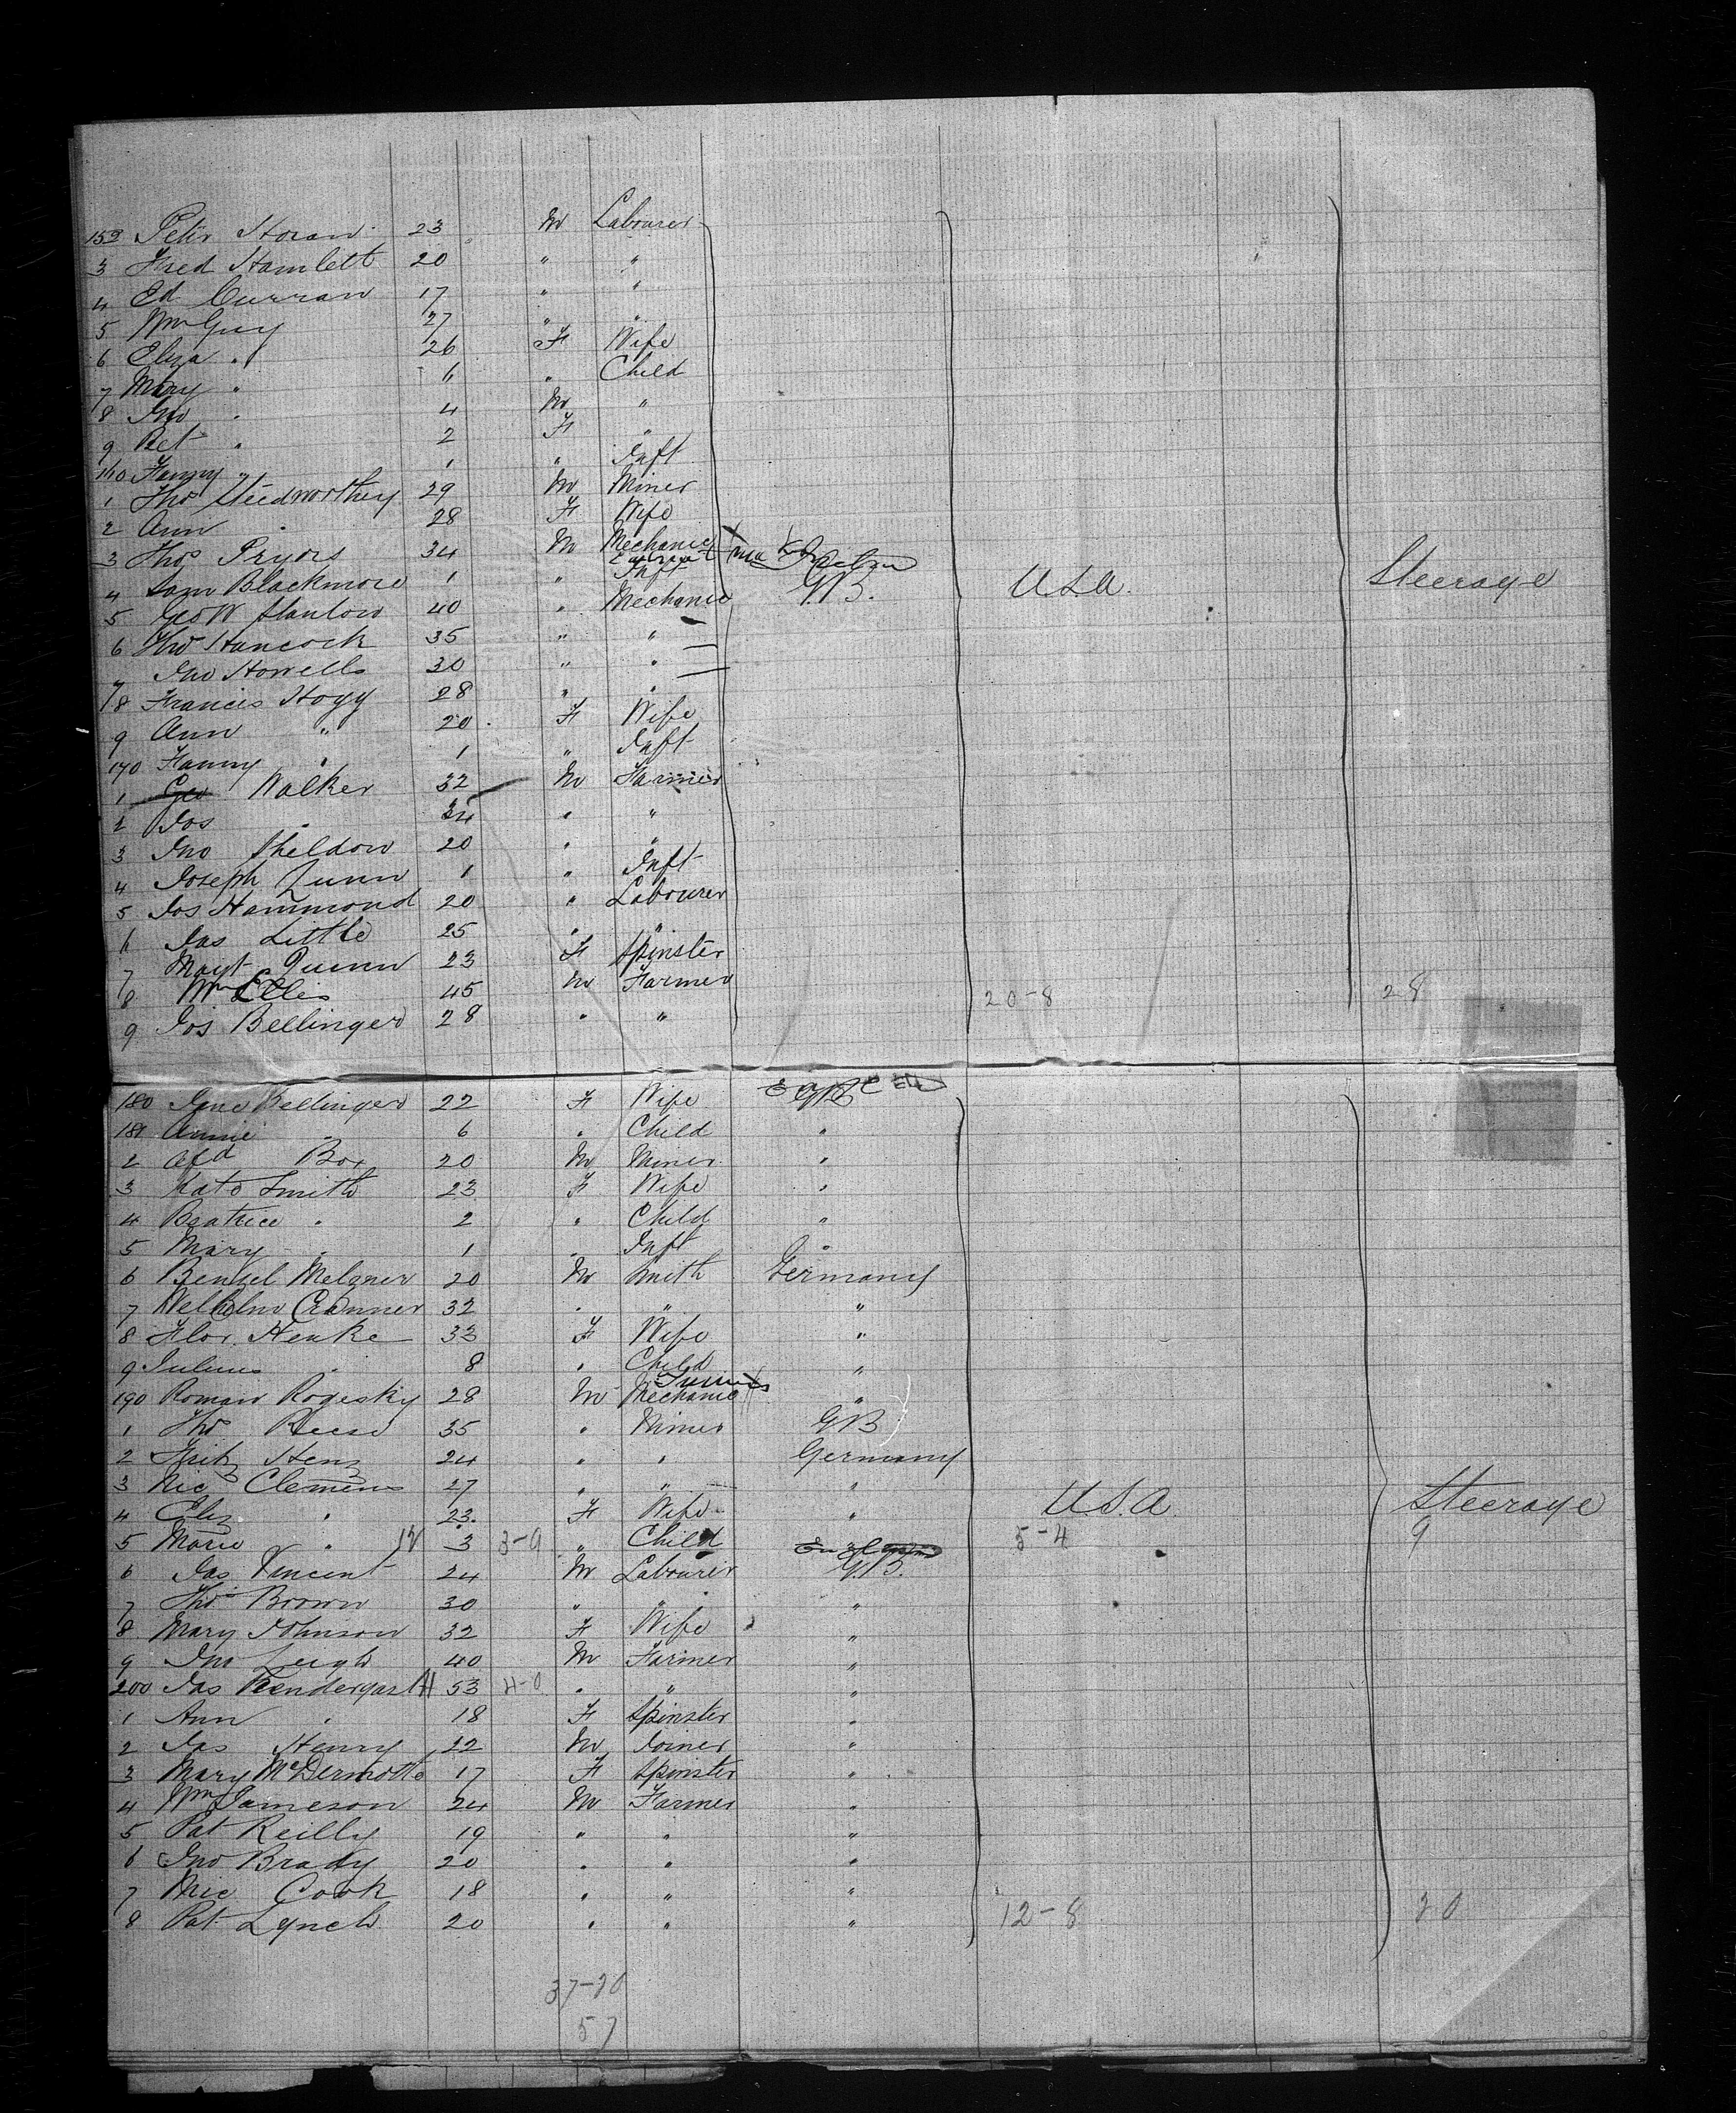 152 Petr Horan 23 M Labourer
3 Fred Hamlett 20 " "
4 Ed Curran 17 " "
5 Wm Guy 27 " "
6 Eliza " 26 F Wife
7 Mary " 6 " Child
8 Jno " 4 M "
9 Bet " 2 F "
160 Fanny " 1 " Inft
1 Thos Steedworthy 29 M Miner
2 Ann " 28 F Wife
3 Thos Pryors 34 M Mechanic
4 Sam Blackmore 1 " Inft G.B. U.S.A. Steerage
5 Geo W Stanlow 40 " Mechanic
6 Thos Hancock 35 " "
7 Jno Howells 30 " "
8 Francis Hogg 28 " "
9 Ann " 20 F Wife
170 Fanny " 1 " Inft
1 Geo Walker 32 M Farmer
2 Jos " 24 " "
3 Jno Sheldon 20 " "
4 Joseph Lunn 1 " Inft
5 Jos Hammond 20 " Labourer
6 Jas Little 25 " "
7 Magt Quinn 23 F Spinster
8 Wm Ellis 45 M Farmer 20-8 28
9 Jos Bellinger 28 " "
180 Jane Bellinger 22 F Wife GB
181 Annie " 6 " Child "
2 Alfd Box 20 M Miner "
3 Kate Smith 23 F Wife "
4 Beatrice " 2 " Child "
5 Mary " 1 " Inft "
6 Benzel Melzner 20 M Smith Germany
7 Welhelm Cranner 32 " " "
8 Flor. Henke 33 F Wife "
9 Julius " 8 " Child "
190 Roman Rogesky 28 M Mechanic "
1 Thos Rees 35 " Miner GB
2 Fritz Henz 24 " " Germany
3 Nic Clemens 27 " " "
4 Eliz " 23 F Wife " U.S.A. Steerage
5 Marie " 3 3-9 " Child 5-4 9
6 Jas Vincent 24 M Labourer G.B.
7 Thos Brown 30 " " "
8 Mary Johnson 32 F Wife "
9 Jno Leigh 40 M Farmer "
200 Jas Prendergast 53 4-0 " " "
1 Ann " 18 F Spinster "
2 Jas Henry 22 M Joiner "
3 Mary McDermott 17 F Spinster "
4 Wm Jameson 24 M Farmer "
5 Pat Reilly 19 " " "
6 Jno Brady 20 " " "
7 Mic Cook 18 " " "
8 Pat Lynch 20 " " " 12-8 20
37-20
57